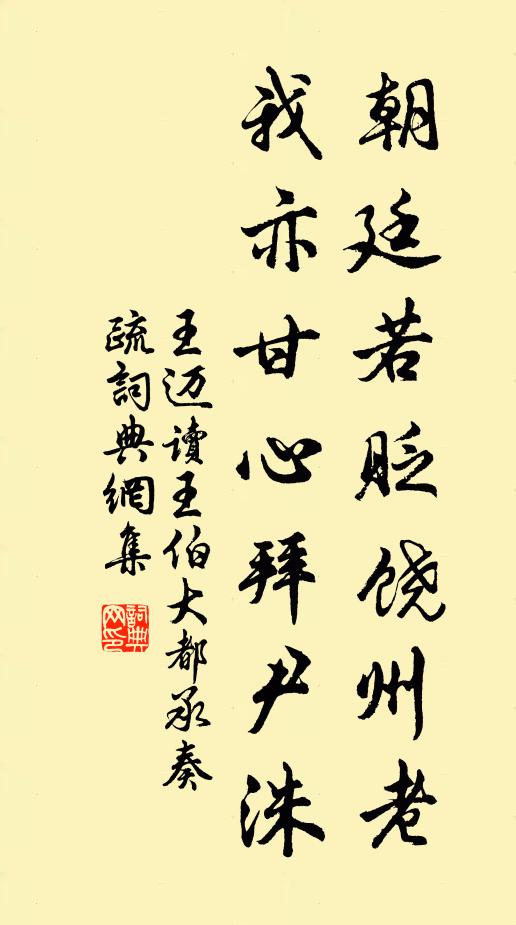 朝廷若貶饶州老
我亦甘心拜尹洙
王迈讀王伯大都承奏
疏詞典網集
詞典
网印